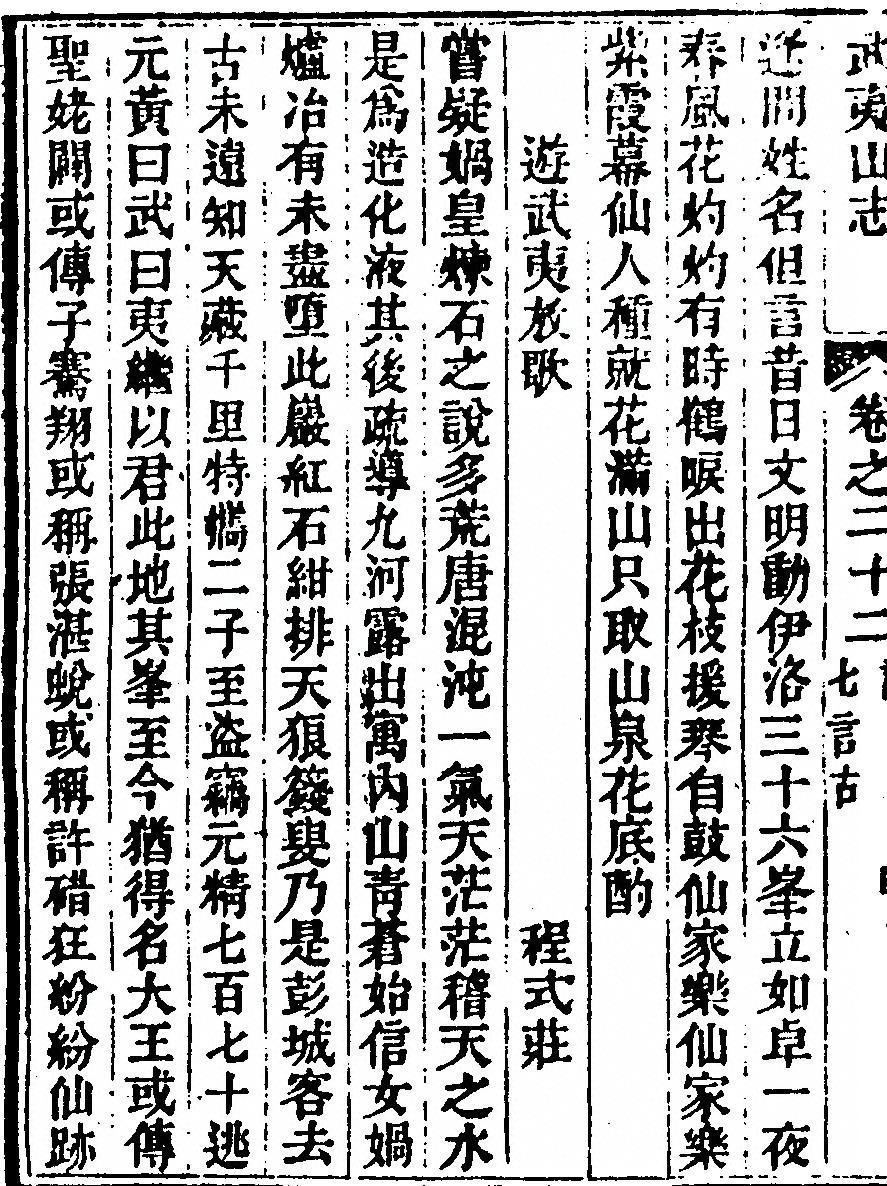 武夷山志 卷之二十二 七言古
逢問姓名但言昔日文明動伊洛三十六峯立如卓一夜
春風花灼灼有時鶴唳出花枝援琴自鼓仙家樂仙家樂
紫霞幕仙人種就花滿山只取山泉花底酌
遊武夷放歌 程式莊
嘗疑媧皇煉石之說多荒唐混沌一氣天茫茫稽天之水
是爲造化液其後疏導九河露出寓內山靑蒼始信女媧
爐冶有未盡墮此巖紅石紺排天狼籛叟乃是彭城客去
古未遠知天藏千里特攜二子至盜竊元精七百七十逃
元黃曰武曰夷繼以君此地其峯至今猶得名大王或傳
聖姥闢或傳子騫翔或稱張湛蛻或稱許碏狂紛紛仙跡